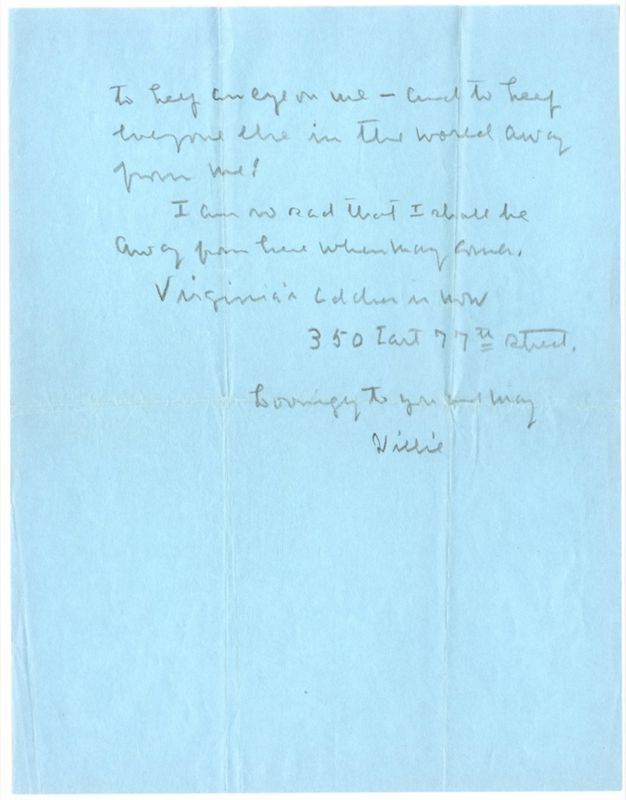 to keep an eye on me – and to keep
everyone else in the world away
from me!
I am so sad that I shall be
away from here when May comes.
Virginia's address is now
350 East 77th street.
Lovingly to you and May
Willie